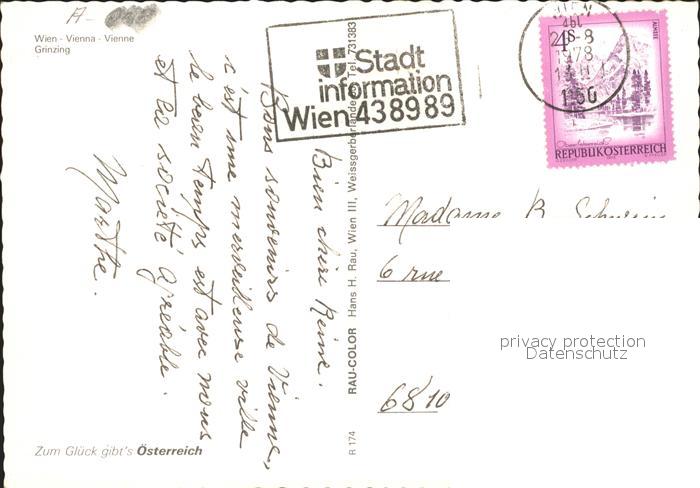 A-
Wien - Vienna - Vienne
Grinzing
Stadt
information
Wien 438989
WIEN
-8
1978
1150
4S
ALMSEE
REPUBLIK ÖSTERREICH
Bien chère Reine.
Bons souvenirs de Vienne,
c'est une merveilleuse ville
le beau temps est avec nous
et la société agréable.
Marthe.
RAU-COLOR Hans H. Rau, Wien III, Weissgerberlände Tel. 731383
R 174
Madame R.
6 rue
6810
privacy protection
Datenschutz
Zum Glück gibt's Österreich